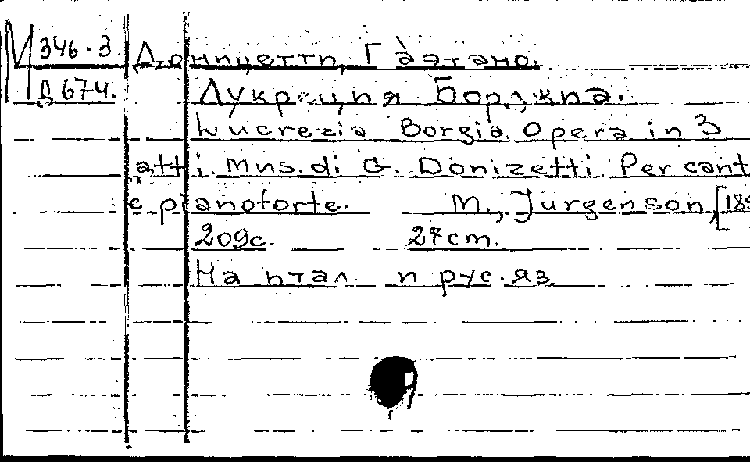 М 346.3 Доницетти, Гаэтано.
Д 674. Лукреция Борджиа.
Lucrezia Borgia. Opera in 3
atti. Mus. di G. Donizetti. Per cant
e pianoforte. М., Jurgenson, [189
209с. 27cm.
На итал. и рус. яз.